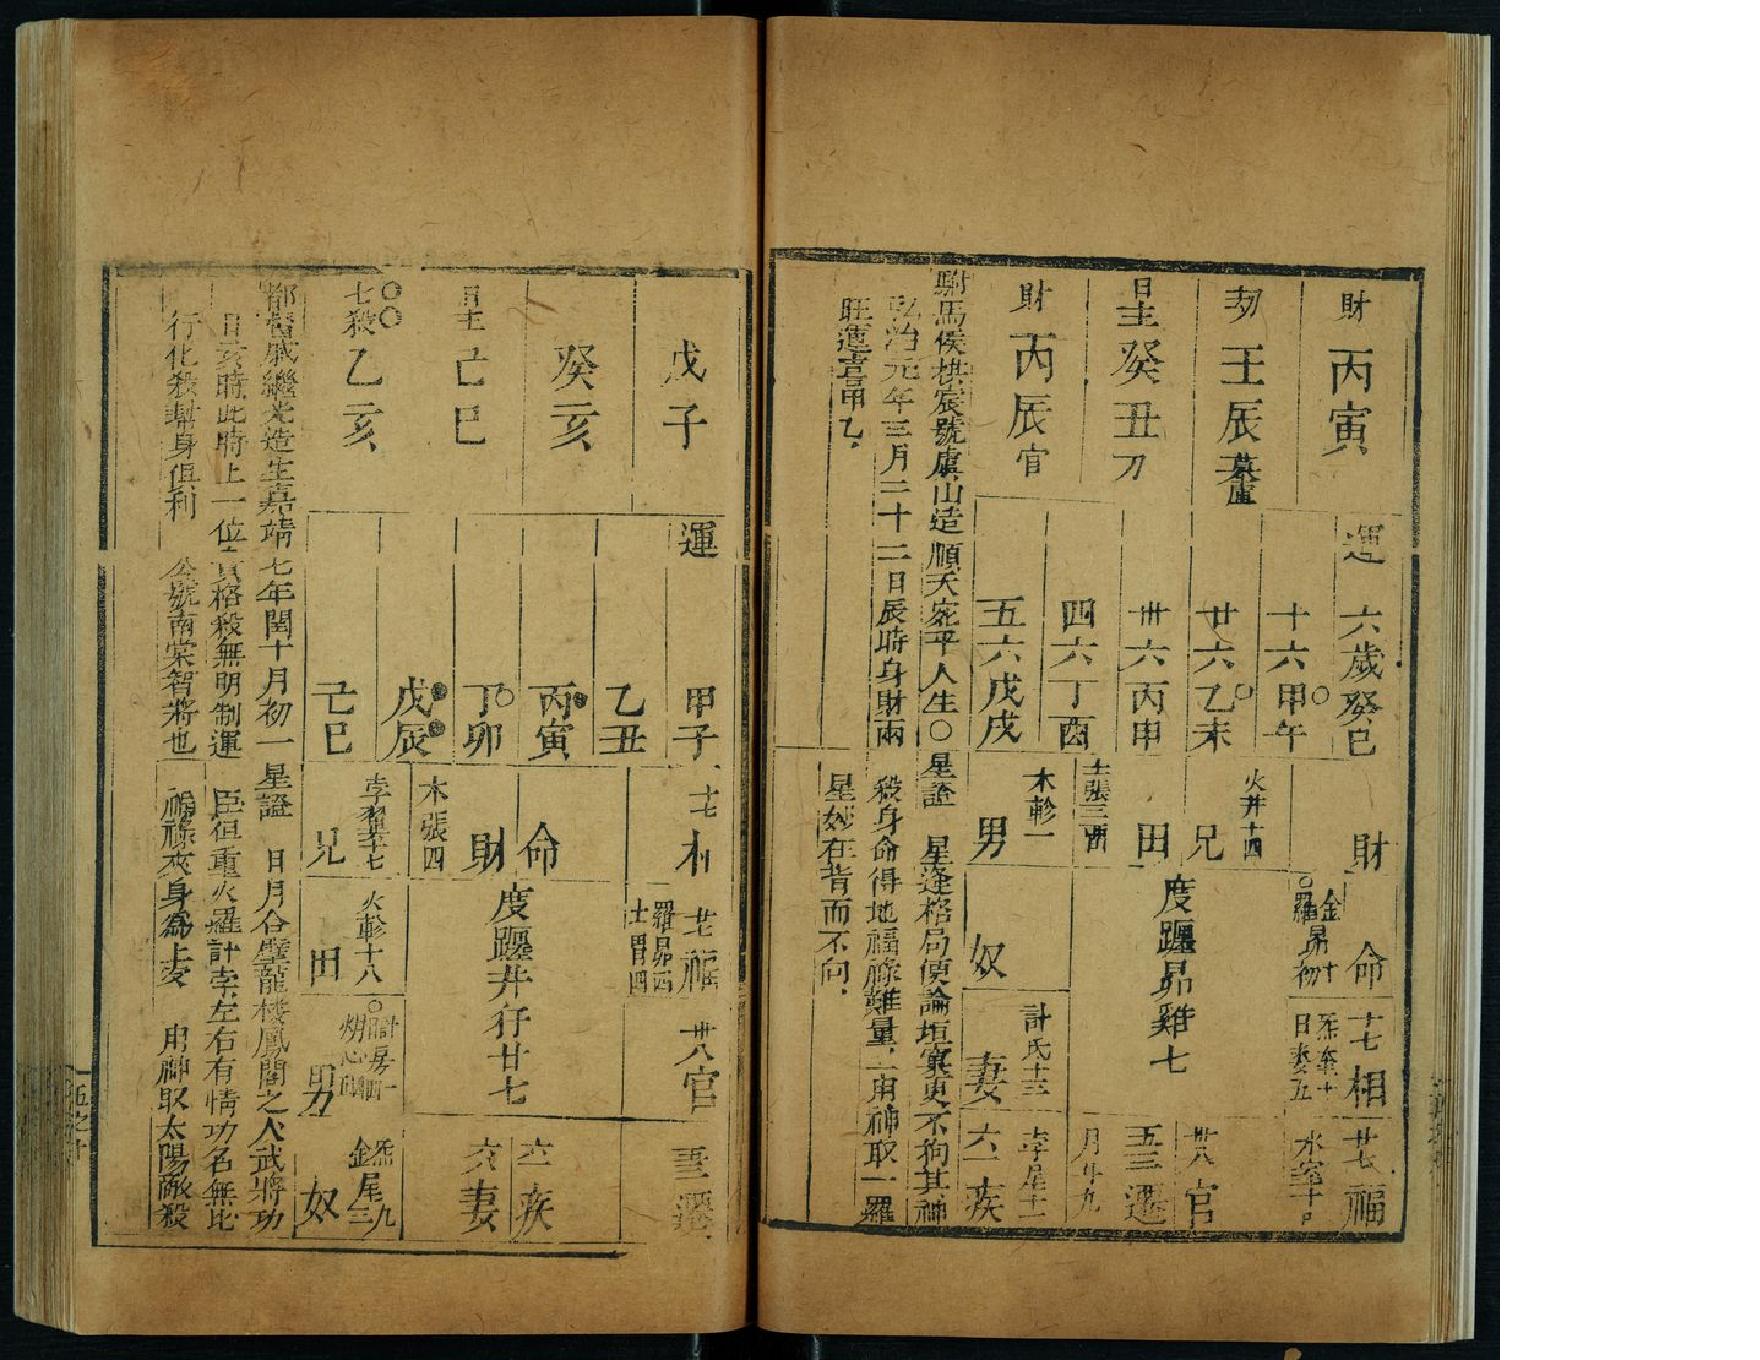 財 丙寅
刼 壬辰 墓庫
日主 癸丑 刀
財 丙辰 官
運 六歲癸巳
十六甲午
廿六乙未
卅六丙申
四六丁酉
五六戊戌
財
火井十四 兄
田
土張三
木軫一 男
命
金昴十
羅昴初
度躔昴雞七
奴
十七相
炁奎十
日婁五
計氐十三 妻
廿七福
水室十
卅八官
五三遷
月牛九
孛尾十一
六一疾
駙馬侯拱宸號虞山造 順天宛平人生
弘治元年三月二十二日辰時身財兩
旺運喜甲乙
星證 星逢格局便論垣寡更不拘其神
殺身命得地福祿難量 用神取一羅
星妙在背而不向
戊子
癸亥
日主 己巳
七殺 乙亥
運 甲子
乙丑
丙寅
丁卯
戊辰
己巳
十七 相
命
財
木張四
孛翌十七
兄
廿七福
羅昴四
土胃四
度躔井犴廿七
火軫十八
田
卅八官
計房一
男
五三遷
疾
妻
炁尾九
金尾三
奴
都督戚繼光造生嘉靖七年閏十月初一
日亥時此時上一位貴格殺無明制運
行化殺幇身俱利 公號南棠智將也
星證 日月合璧龍樓鳳閣之人武將功
臣但重火羅計孛左右有情功名無比
福祿夾身爲上安 用神取太陽敵殺